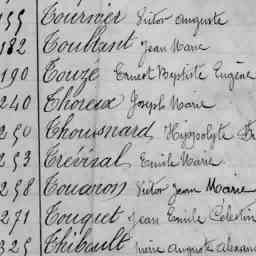 155 Tournier Victor Auguste
182 Toublant Jean Marie
190 Touzé Ernest Baptiste Eugène
240 Thoreux Joseph Marie
250 Thoussnard Hippolyte
253 Trévisal Emile Marie
258 Touanon Victor Jean Marie
271 Touquet Jean Emile Celestin
325 Thibault Pierre Auguste